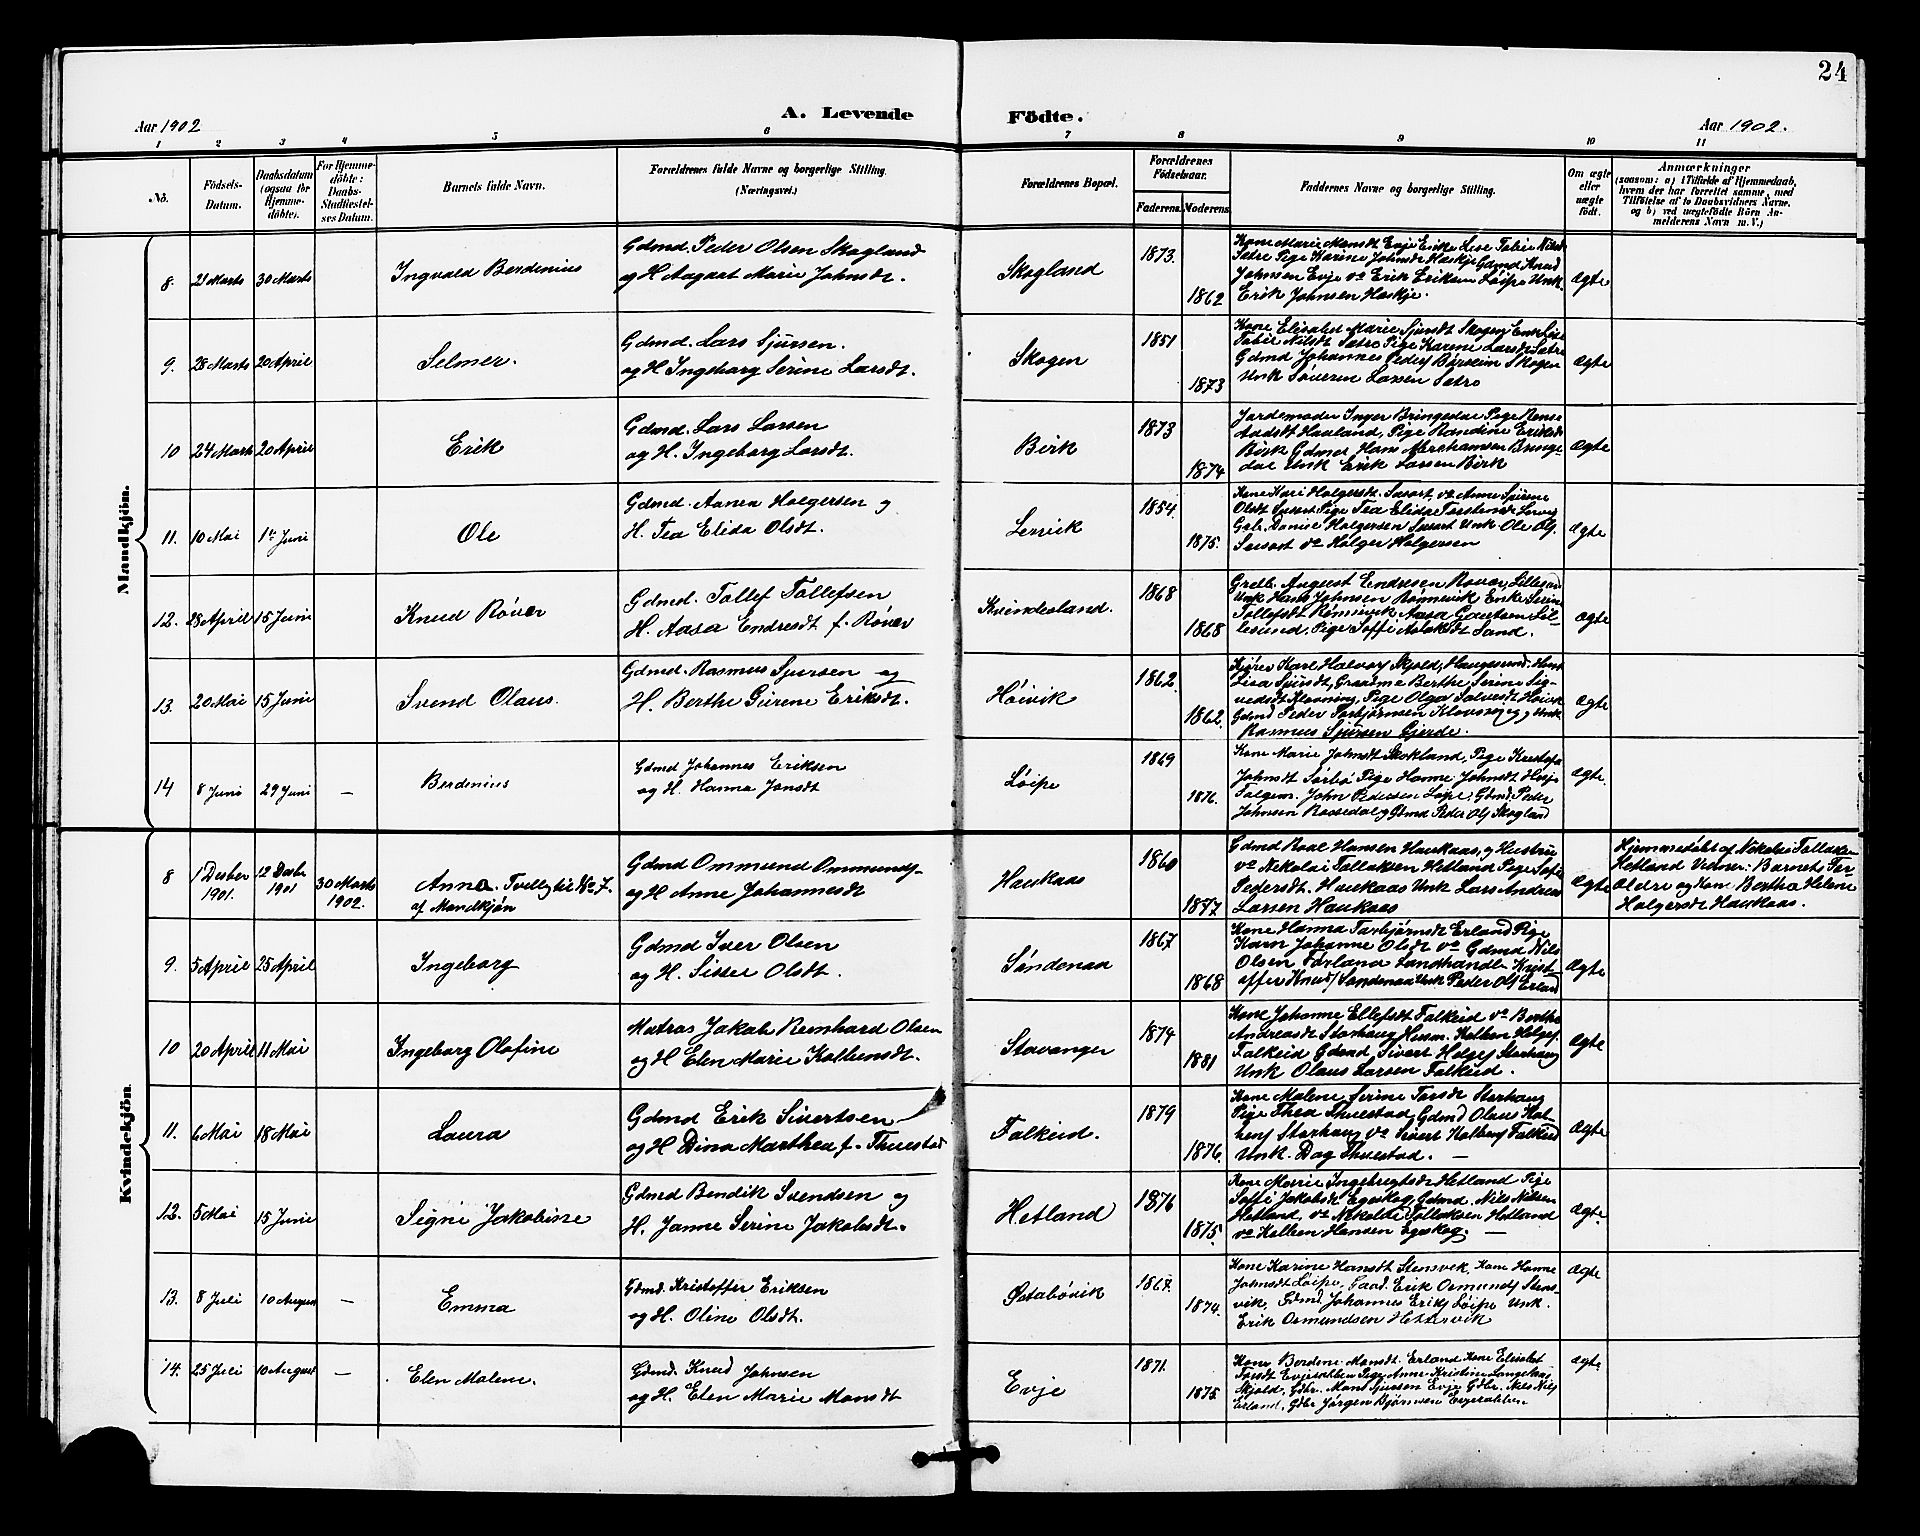 24
Aar 1902
A. Levende Födte.
Aar 1902.
1 2 3 4 5 6 7 8 9 10 11
No.
Födsels-Datum.
Daabsdatum (ogsaa for Hjemmedöbte).
For Hjemmedöbte: Daabs-Stadfæstelses Datum.
Barnets fulde Navn.
Forældrenes fulde Navne og borgerlige Stilling. (Næringsvei.)
Forældrenes Bopæl.
Forældrenes Födselsaar.
Faderens. Moderens.
Faddernes Navne og borgerlige Stilling.
Om ægte eller uægte födt.
Anmærkninger
(saasom: a) i Tilfælde af Hjemmedaab, hvem der har forrettet samme, med Tilföielse af to Daabsvidners Navne, og b) ved uægtefödte Börn Anmelderens Navn m. V.)
Mandkjön.
8. 21 Marts 30 Marts Ingvald Berdenius
Gdmd. Peder Olsen Skogland
og H Aagaat Marie Johnsdt.
Skogland 1873. 1862
Kone Marie Monsdt Evje Enke Lise Tobie Nilsdt
Sætre Pige Karine Johnsdt Haskje Gdmd Knud
Johnsen Evje og Erik Eriksen Löipe Unk.
Erik Johnsen Haskje.
Ægte
9. 28 Marts 20 April Selmer.
Gdmd. Lars Sjursen.
og H Ingeborg Serine Larsdt.
Skogen 1851 1873
Kone Elisabet Marie Sjursdt Skogen Enke Lise
Tobie Nilsdt Sætre Pige Karene Larsdt Sætre
Gdmd Johannes Peders Börkeim Skogen
Unk Söveren Larsen Sætre
Ægte
10 24 Marts 20 April Erik
Gdmd. Lars Larsen
og H. Ingeborg Larsdt.
Birk 1873 1874
Jordemoder Inger Bringedal Pige
Hauland, Pige Randine Eriksdt
Birk Gdmd Hans Abrahamsen Bringedal
Unk Erik Larsen Birk
Ægte
11. 10 Mai 1ste Juni Ole
Gdmd. Aanen Holgersen og
H. Tea Elida Olsdt.
Lervik 1854. 1875.
Kone Kari Holgersdt. og Anne Serine
Olsdt Pige Tea Elida Torstensdt Lervig
Gdb. Daniel Holgersen Unk Ole Ols.
og Holger Holgersen
Ægte
12. 28 April 15 Juni Knud Rövær
Gdmd. Tollef Tollefsen
H. Aasa Endresdt f. Rövær
Kvindesland. 1868 1868
August Endresen Rövær, Lillesund
Unk Hans Johnsen Rönnevik Enke Serine
Tollefsdt Rönnevik Aasa Gautsen Lillesund,
Pige Soffi Aslaksdt Sand.
Ægte
13. 20 Mai 15 Juni Svend Olaus.
Gdmd. Rasmus Sjursen og
H. Berthe Gurene Eriksdt.
Höivik 1862. 1862.
Karl Halvors Skjold, Haugesund. Hust
Lisa Sjursdt, Berthe Serine
Klovning, Pige Olga Salvesdt Höivik
Gdmd Peder Torbjörnsen og Unk.
Rasmus Sjursen Gjerde.
Ægte
14 8 Juni 29 Juni — Berdinius
Gdmd Johannes Eriksen
og H. Hanna Jonsdt
Löipe 1869 1876.
Kone Marie Johnsdt Skokland, Pige
Johnsdt Sörbö Pige Hanne Johnsdt
John Pedersen Löipe, Gdmd. Peder
Johnsen og Gdmd Peder Ols Skogland
Ægte.
Kvindekjön
8 1 Desber 1901. 12 Desbr 1901 30 Marts 1902.
Anna. Tvilling til No 7.
af Mandkjön
Gdmd Ommund Ommunds.
og H Anne Johannesdt
Haukaas 1860 1857
Gdmd Roal Hansen Haukaas, og Hustru
og Nekolai Tollaksen Hetland Pige Sofie
Pedersdt. Haukaas Unk Lars Andreas
Larsen Haukaas
Ægte
Hjemmedöbt af Nikolai Tollaksen
Hetland Vidner: Barnets Forældre
og Kone Bertha Helene
Holgersdt Haukaas.
9. 5 April 25 April Ingeborg
Gdmd Iver Olsen
og H. Sissel Olsdt.
Söndenaa 1867 1868
Kone Hanna Torbjörnsdt Erland Pige
Karn Johanne Olsdt og Gdmd Nils
Olsen Landhandler Kristoffer
Knuds Söndenaa Unk Peder Ols Erland
Ægte
10 20 April 11 Mai Ingeborg Olafine
Matros Jakob Rernhard Olsen
og H Elen Marie Kolbensdt.
Stavanger 1874 1881
Kone Johanne Ellefsdt Falkeid og Berthe
Andreasdt Storhaug Husm. Kolben Helges.
Falkeid Gdmd Sivert Helges Storhaug
Unk Olaus Larsen Falkeid.
Ægte
11. 6 Mai 18 Mai Laura
Gdmd Erik Sivertsen
og H Dina Marthea f. Thuestad
Falkeid. 1879 1876.
Kone Malene Serine Torsdt Storhaug
Pige Thea Thuestad, Gdmd Olaus Kolbens
Storhaug og Sivert Kolbens Falkeid
Unk. Dag Thuestad. —
Ægte
12. 5 Mai 15 Juni Signi Jakobine
Gdmd Bendik Svendsen og
H. Janne Serine Jakobsdt.
Hetland 1876 1875.
Kone Marie Ingebregtsdt Hetland Pige
Soffi Jakobsdt Egeskog, Gdmd. Nils Nilsen
Hetland, og Nekolai Tollaksen Hetland
og Kolben Hansen Egeskog. —
Ægte.
13. 8 Juli 10 August — Emma
Gdmd. Kristoffer Eriksen
og H. Oline Olsdt.
Østabövik 1867. 1874.
Kone Karine Hansdt Stensvik, Kone Hanne
Johnsdt Löipe, Erik Osmunds Stensvik,
Gdmd Johannes Eriks Löipe Unk.
Erik Osmundsen Hettervik
Ægte
14. 25 Juli 10 August — Elen Malene.
Gdmd. Knud Johnsen
og H. Elen Marie Monsdt
Evje 1871. 1875
Kone Berdene Monsdt. Erland Kone Elisabet
Pige Anne Kristine
Skjold, Gdbr. Mons Sjursen Evje Gdbr. Nils Nils
Erland, Gdbr Jörgen Björnsen
Ægte